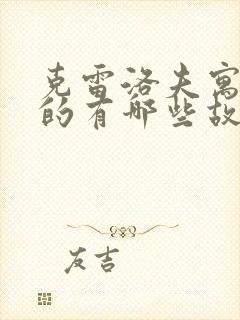 克雷洛夫寓
的有哪些故
友吉